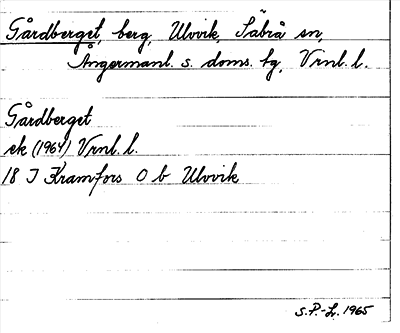 Gårdberget, berg, Ulvvik, Säbrå sn,
Ångermanl. s. doms. tg, Vrnl. l.
Gårdberget
ek (1964) Vrnl. l.
18 J Kramfors O b Ulvvik
S.P.-L. 1965